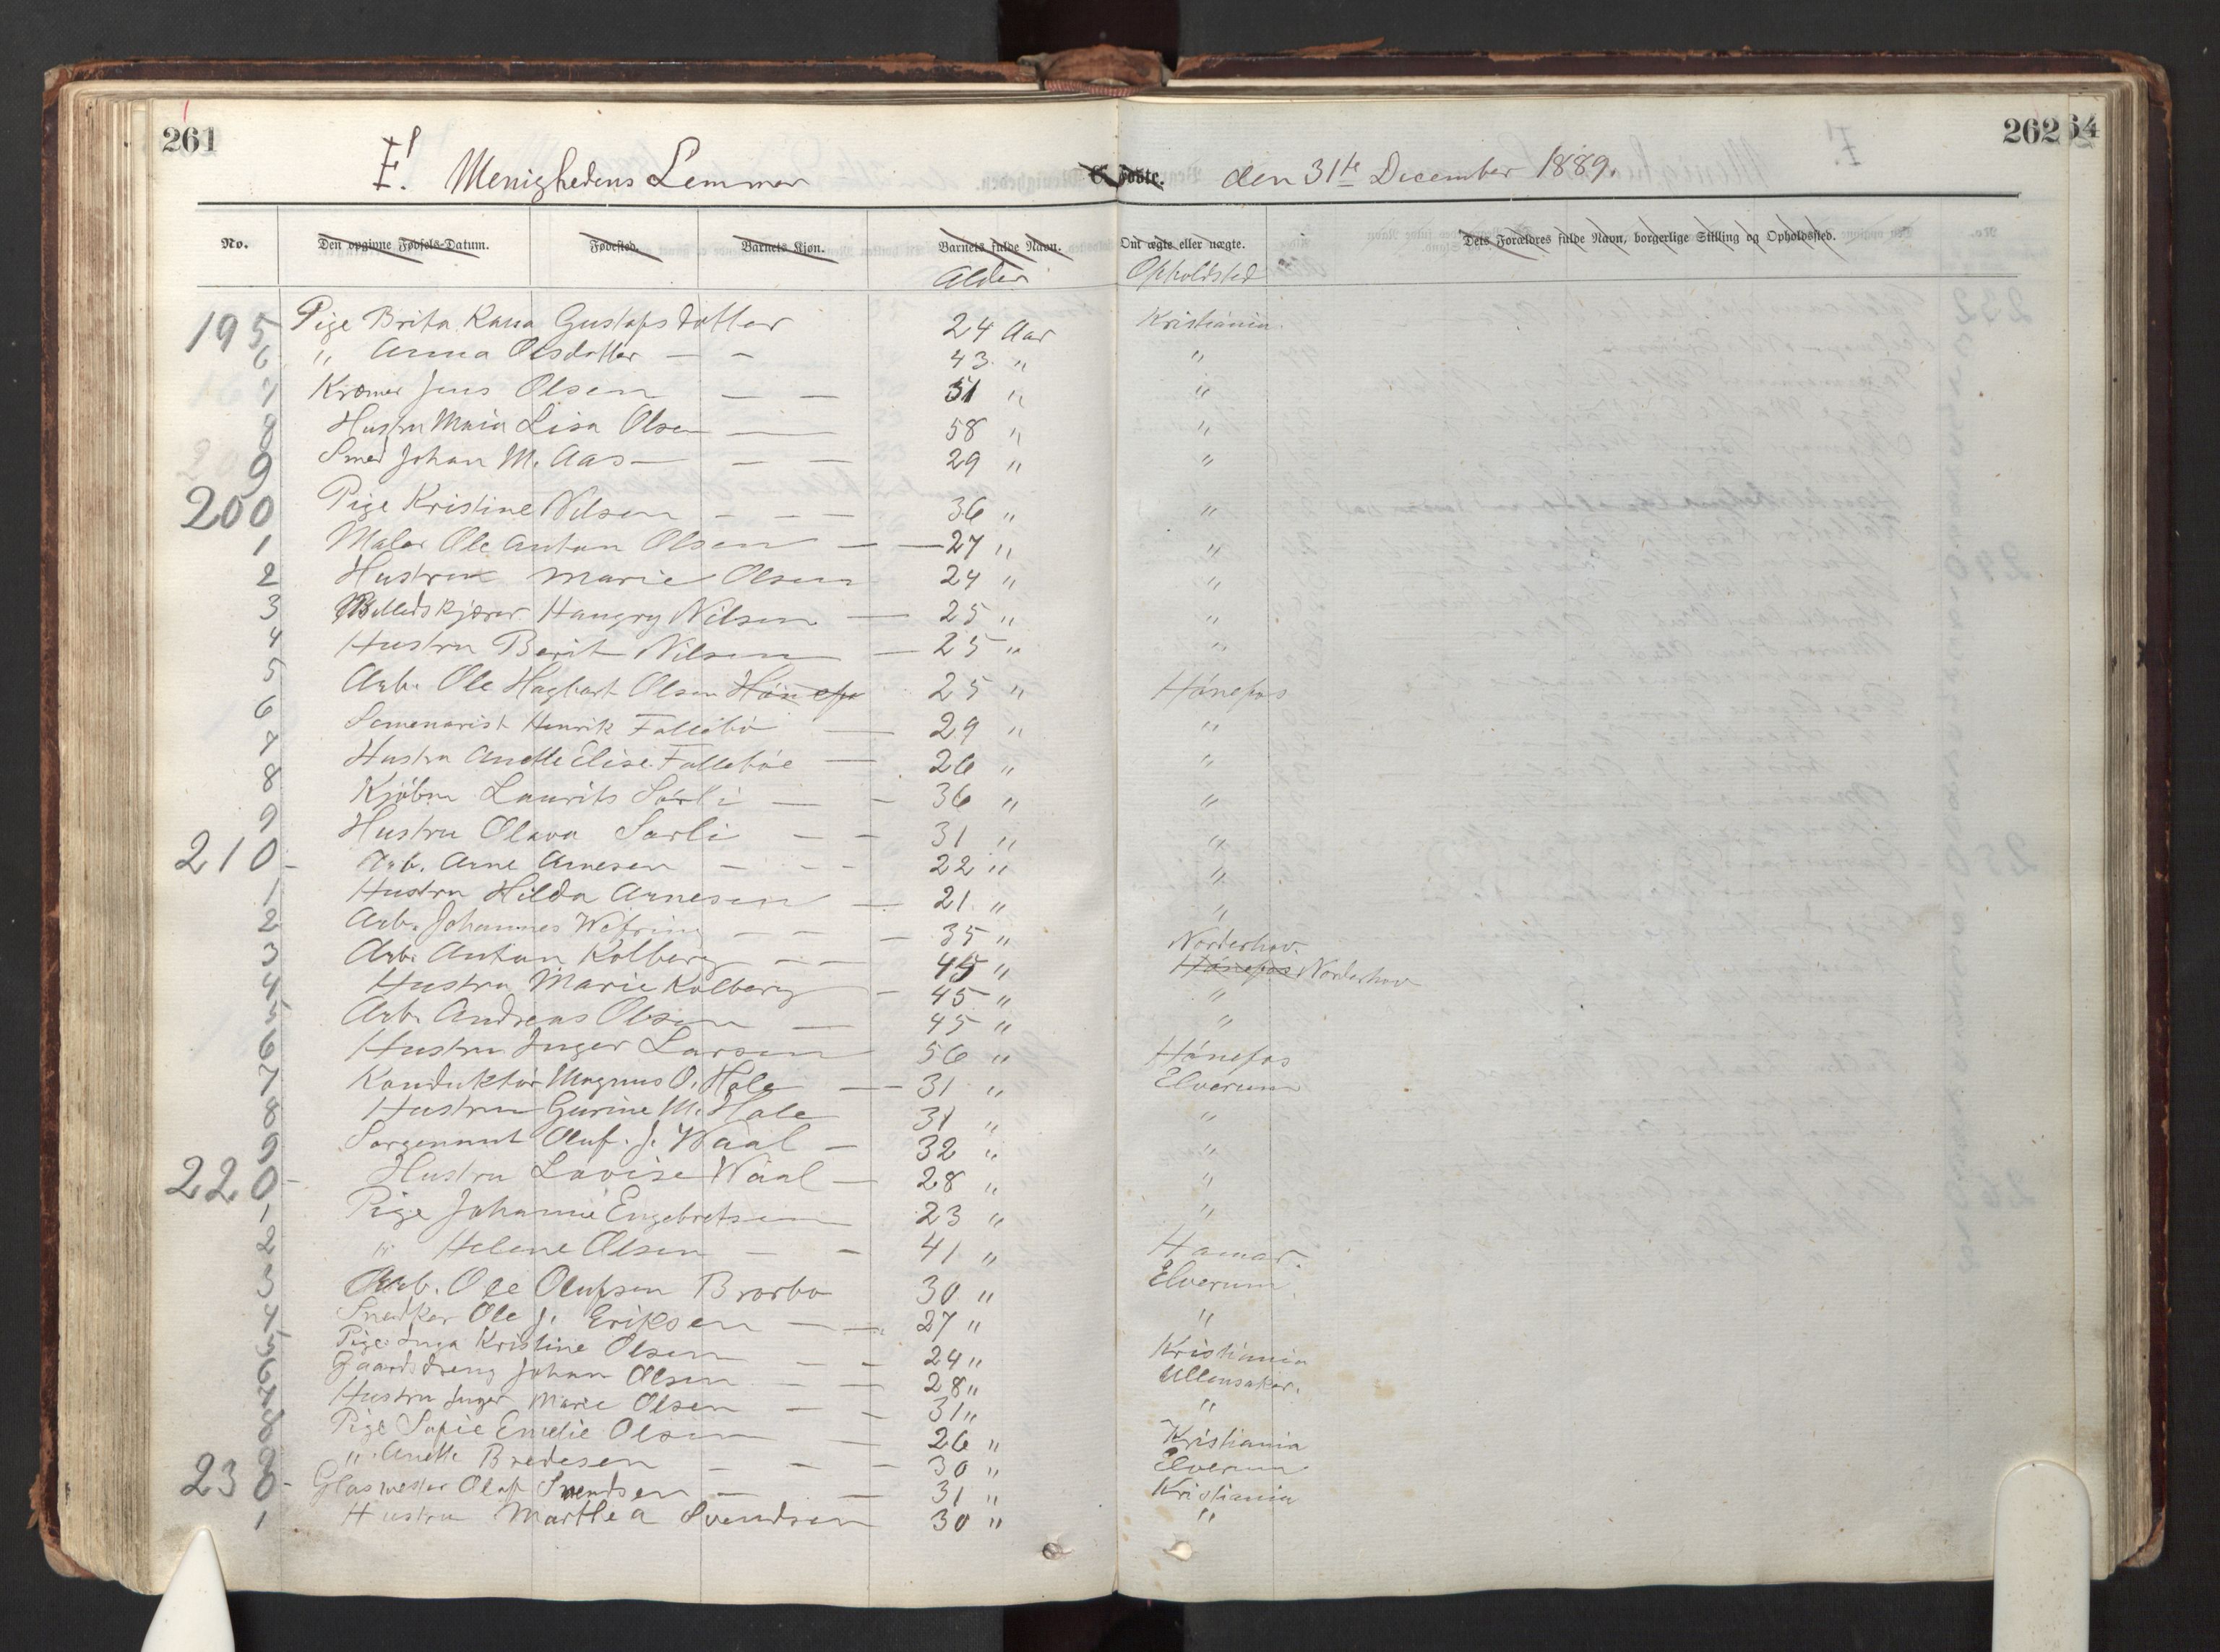 261 262 64
F. Menighedens Lemmer C. Fødte. den 31te December 1889.
No. Den opgivne Fødsels-Datum. Fødested. Barnets Kjøn. Barnets fulde Navn. Om ægte eller uægte. Dets Forældres fulde Navn, borgerlige Stilling og Opholdssted.
Alder Opholdsted
195 Pige Brita Kaisa Gustafsdotter 24 Aar Kristiania
6 " Anna Olsdotter — — 43 " "
7 Kræmer Jens Olsen — — 51 " "
8 Hustru Maria Lisa Olsen — 58 " "
9 Smed Johan M. Aas — — — 29 " "
200 Pige Kristine Nilsen — — — 36 " "
1 Maler Ole Anton Olsen — — 27 " "
2 Hustru Marie Olsen 24 " "
3 Billedskjærer Nilsen — 25 " "
4 Hustru Berit Nilsen — 25 " "
5 Arb. Ole Hagbart Olsen Hönefos 25 " Hönefos
6 Semenarist Henrik Falleböe — 29 " "
7 Hustru Anette Elise Falleböe — 26 " "
8 Kjöbm Laurits Sörli — — 36 " "
9 Hustru Olava Sørli — — 31 " "
210 Arb. Arne Arnesen — — — 22 " "
1 Hustru Hilda Arnesen — 21 " "
2 Arb. Johannes — — — 35 " Norderhov.
3 Arb. Anton Kolberg — — 45 " Hönefos Norderhov
4 Hustru Marie Kolberg — 45 " "
5 Arb. Andreas Olsen — 45 " "
6 Hustru Inger Larsen 56 " Hönefos
7 Konduktör Magnus O. Hole — 31 " Elverum
8 Hustru Gurine M. Hole 31 " "
9 Olaf. J. Waal — 32 " "
220 Hustru Lovise Waal — 28 " "
1 Pige Johanne Engebretsen 23 " "
2 " Helene Olsen — — 41 " Hamar.
3 Arb. Ole Olufsen Brorbo 30 " Elverum.
4 Snedker Ole J. Eriksen — — 27 " "
5 Pige Inga Kristine Olsen — — 24 " Kristiania
6 Gaardsdreng Johan Olsen — — 28 " Ullensaker.
7 Hustru Inger Marie Olsen — — 31 " "
8 Pige Sofie Emelie Olsen — 26 " Kristiania
9 " Anette Bredesen — — — 30 " Elverum
230 Glasmester Olaf Svendsen — — 31 " Kristiania
1 Hustru Marthea Svendsen 30 " "